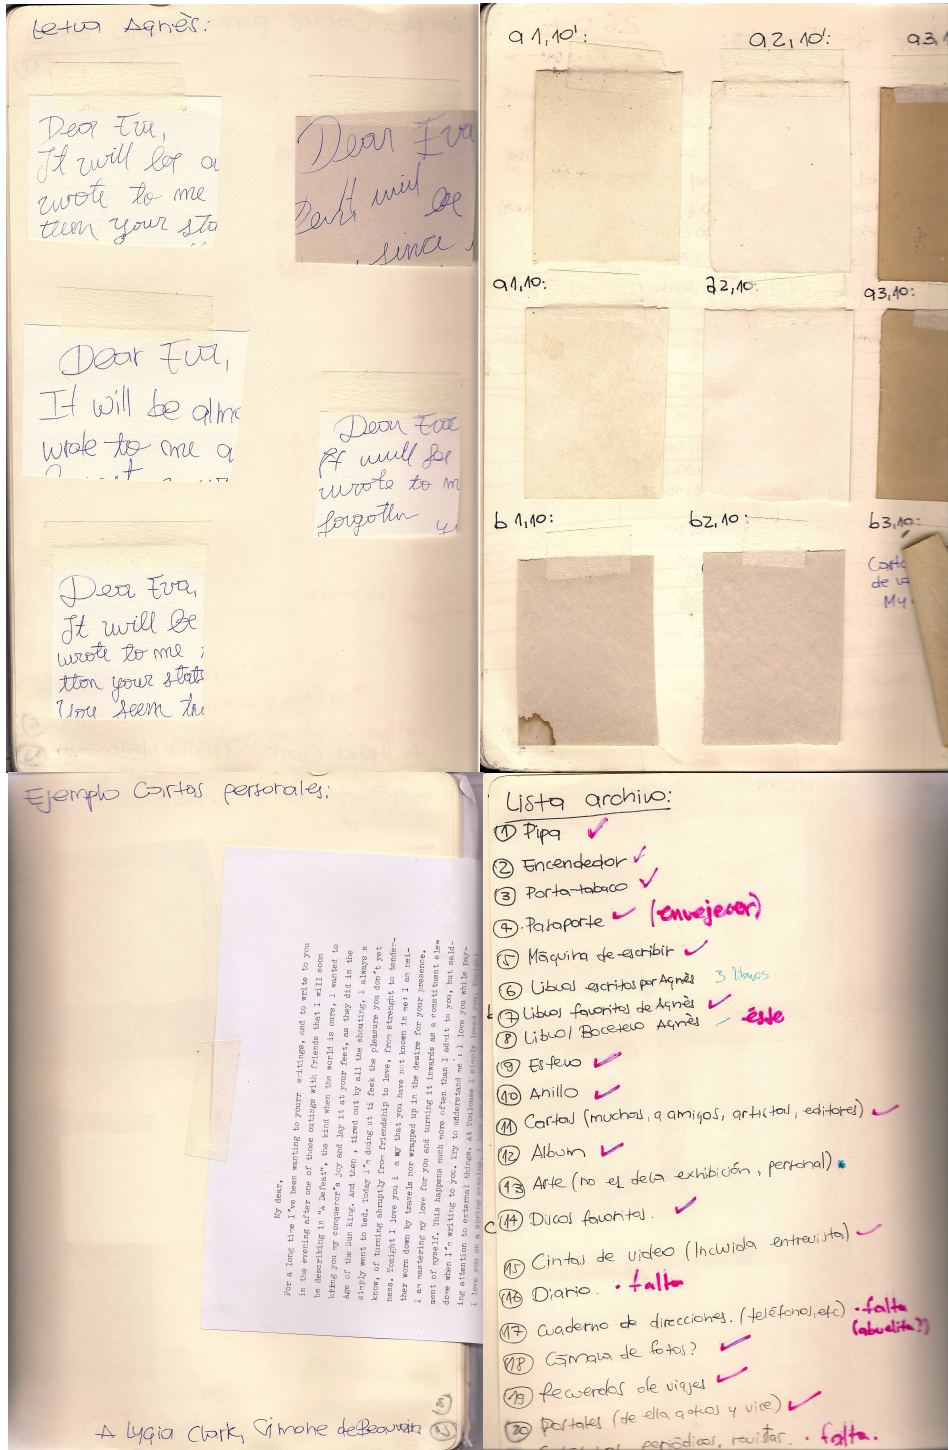 Letra Agnès:
Dear Eva,
It will be a
wrote to me
tten your sta
Dear Eva
will be
since
Dear Eva,
It will be almo
wrote to me a
Dear Eva
It will be
wrote to m
forgotten
Dear Eva,
It will be
wrote to me
tten your stat
You seem tr
a1,10':
a2,10':
a3,1
a1,10:
a2,10:
a3,10:
b1,10:
b2,10:
b3,10:
Carta
de
My
Ejemplo Cartas personales:
My dear,
For a long time I've been wanting to yourr writings, and to write to you
in the evening after one of those outings with friends that I will soon
be describing in "A Defeat", the kind when the world is ours, I wanted to
bring you my conqueror's joy and lay it at your feet, as they did in the
Age of the Sun King. And then , tired out by all the shouting, I always s
simply went to bed. Today I'm doing ut ti feek the pleasure you don't yet
know, of turning abruptly from friendship to love, from strenght to tender-
ness. Tonight I love you i a way that you have not known in me: I am nei-
ther worn down by travels nor wrapped up in the desire for your presence.
I am mastering my love for you and turning it inwards as a constituent ele=
ment of myself. This happens much more often than I admit to you, but seld-
dome when I'm writing to you. Try to understand me : I love you while pay-
ing attention to external things. At Toulouse I simply loved you.
I love you on a spring evening,
A Lygia Clark, Simone de Beauvoir
Lista archivo:
1 Pipa
2 Encendedor
3 Porta-tabaco
4 Pasaporte (envejecer)
5 Máquina de escribir
6 Libros escritos por Agnès 3 libros
7 Libros favoritos de Agnès
8 Libro/Bocetero Agnès éste
9 Esfero
10 Anillo
11 Cartas (muchas, a amigos, artistas, editores)
12 Album
13 Arte (no el de la exhibición, personal)
14 Discos favoritos.
15 Cintas de video (Incluida entrevista)
16 Diario. falta
17 cuaderno de direcciones. (teléfonos, etc) falta
(abuelita?)
18 Cámara de fotos?
19 Recuerdos de viajes
20 postales (de ella a otros y vice)
periódicos, revistas. falta.